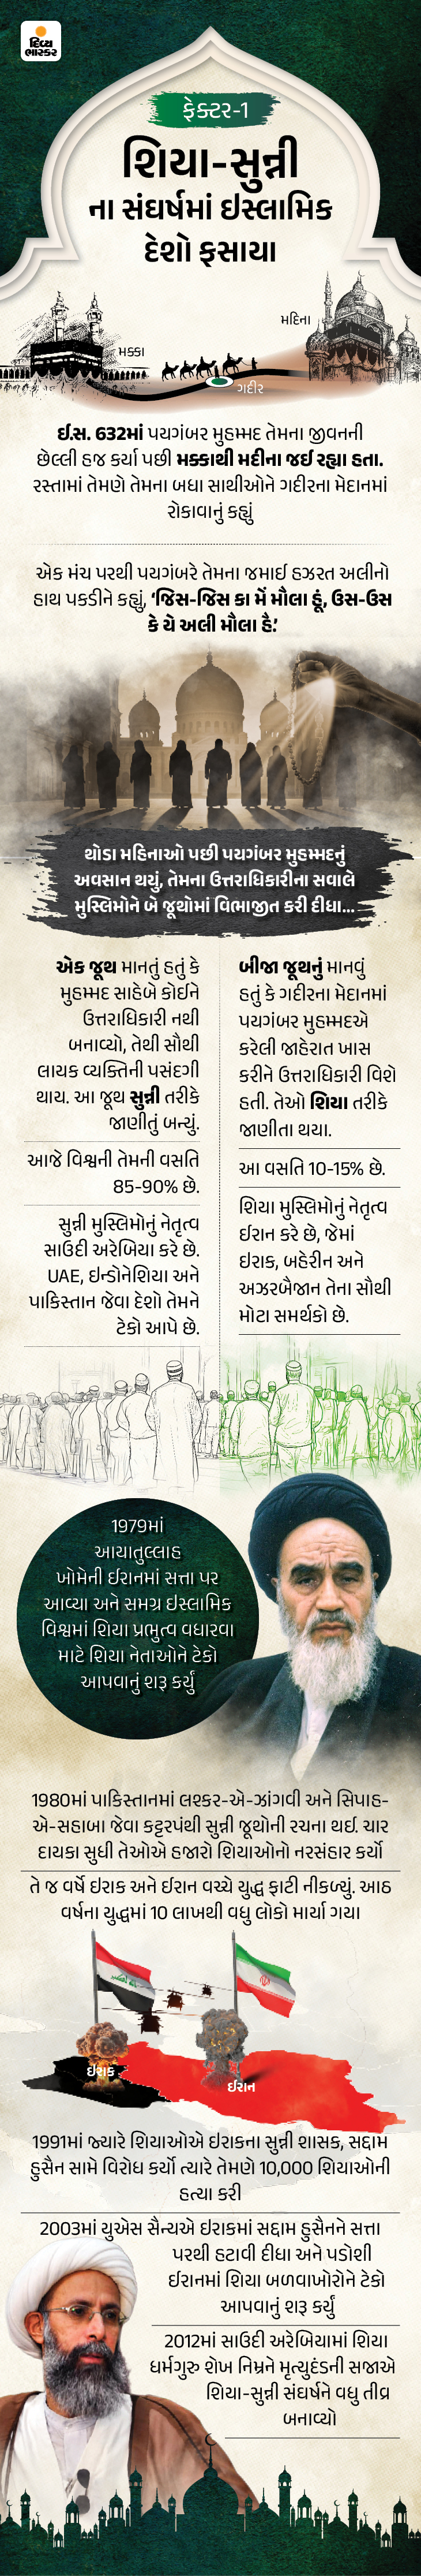 દિવ્ય
ભાસ્કર
ફેક્ટર-1
શિયા-સુન્ની
ના સંઘર્ષમાં ઇસ્લામિક
દેશો ફસાયા
મદિના
મક્કા
ગદીર
ઈ.સ. 632માં પયગંબર મુહમ્મદ તેમના જીવનની
છેલ્લી હજ કર્યા પછી મક્કાથી મદીના જઈ રહ્યા હતા.
રસ્તામાં તેમણે તેમના બધા સાથીઓને ગદીરના મેદાનમાં
રોકાવાનું કહ્યું
એક મંચ પરથી પયગંબરે તેમના જમાઈ હઝરત અલીનો
હાથ પકડીને કહ્યું, ‘જિસ-જિસ કા મેં મૌલા હૂં, ઉસ-ઉસ
કે યે અલી મૌલા હૈ.’
થોડા મહિનાઓ પછી પયગંબર મુહમ્મદનું
અવસાન થયું, તેમના ઉત્તરાધિકારીના સવાલે
મુસ્લિમોને બે જૂથોમાં વિભાજીત કરી દીધા...
એક જૂથ માનતું હતું કે
મુહમ્મદ સાહેબે કોઈને
ઉત્તરાધિકારી નથી
બનાવ્યો, તેથી સૌથી
લાયક વ્યક્તિની પસંદગી
થાય. આ જૂથ સુન્ની તરીકે
જાણીતું બન્યું.
આજે વિશ્વની તેમની વસતિ
85-90% છે.
સુન્ની મુસ્લિમોનું નેતૃત્વ
સાઉદી અરેબિયા કરે છે.
UAE, ઇન્ડોનેશિયા અને
પાકિસ્તાન જેવા દેશો તેમને
ટેકો આપે છે.
બીજા જૂથનું માનવું
હતું કે ગદીરના મેદાનમાં
પયગંબર મુહમ્મદએ
કરેલી જાહેરાત ખાસ
કરીને ઉત્તરાધિકારી વિશે
હતી. તેઓ શિયા તરીકે
જાણીતા થયા.
આ વસતિ 10-15% છે.
શિયા મુસ્લિમોનું નેતૃત્વ
ઈરાન કરે છે, જેમાં
ઇરાક, બહેરીન અને
અઝરબૈજાન તેના સૌથી
મોટા સમર્થકો છે.
1979માં
આયાતુલ્લાહ
ખોમેની ઈરાનમાં સત્તા પર
આવ્યા અને સમગ્ર ઇસ્લામિક
વિશ્વમાં શિયા પ્રભુત્વ વધારવા
માટે શિયા નેતાઓને ટેકો
આપવાનું શરૂ કર્યું
1980માં પાકિસ્તાનમાં લશ્કર-એ-ઝાંગવી અને સિપાહ-
એ-સહાબા જેવા કટ્ટરપંથી સુન્ની જૂથોની રચના થઈ. ચાર
દાયકા સુધી તેઓએ હજારો શિયાઓનો નરસંહાર કર્યો
તે જ વર્ષે ઇરાક અને ઈરાન વચ્ચે યુદ્ધ ફાટી નીકળ્યું. આઠ
વર્ષના યુદ્ધમાં 10 લાખથી વધુ લોકો માર્યા ગયા
ઈરાક
ઈરાન
1991માં જ્યારે શિયાઓએ ઇરાકના સુન્ની શાસક, સદ્દામ
હુસૈન સામે વિરોધ કર્યો ત્યારે તેમણે 10,000 શિયાઓની
હત્યા કરી
2003માં યુએસ સૈન્યએ ઇરાકમાં સદ્દામ હુસૈનને સત્તા
પરથી હટાવી દીધા અને પડોશી
ઈરાનમાં શિયા બળવાખોરોને ટેકો
આપવાનું શરૂ કર્યું
2012માં સાઉદી અરેબિયામાં શિયા
ધર્મગુરુ શેખ નિમ્રને મૃત્યુદંડની સજાએ
શિયા-સુન્ની સંઘર્ષને વધુ તીવ્ર
બનાવ્યો